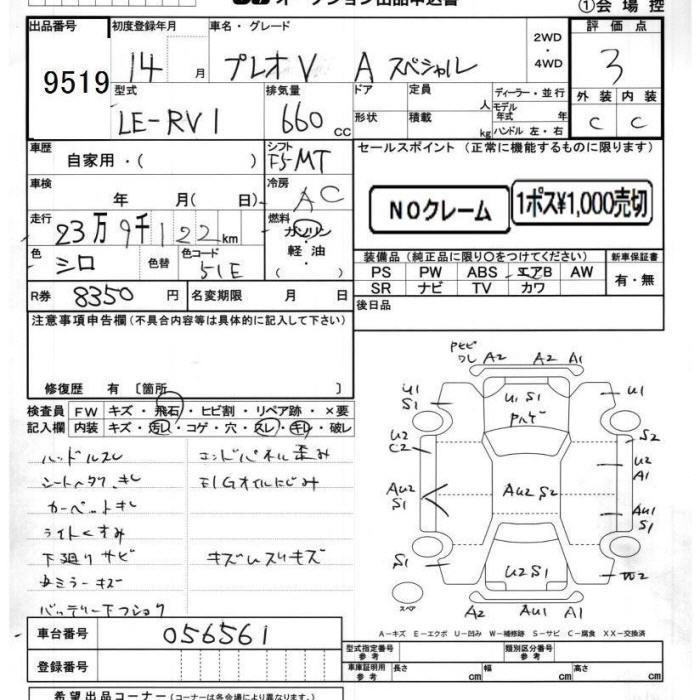 オークション出品申込書
①会場控
出品番号 初度登録年月 車名・グレード 2WD・4WD 評価点
9519 14 月 プレオV A スペシャル 3
型式 排気量 ドア 定員 人 ディーラー・並行 外装 内装
LE-RV1 660 CC 形状 積載 kg モデル年式 年 ハンドル 左・右 C C
車歴 自家用・( ) シフト F5-MT セールスポイント (正常に機能するものに限ります)
車検 年 月( 日) 冷房 AC
NOクレーム 1ポス¥1,000売切
走行 23万9千122km 燃料 ガソリン 軽油 ( )
色 シロ 色替 色コード 51E
装備品 (純正品に限り○をつけてください) 新車保証書
PS PW ABS エアB AW 有・無
SR ナビ TV カワ
R券 8350円 名変期限 月 日 後日品
注意事項申告欄(不具合内容等は具体的に記入して下さい)
修復歴 有 〔箇所 〕
検査員 FW キズ・飛石・ヒビ割・リペア跡・×要
記入欄 内装 キズ・汚レ・コゲ・穴・スレ・キレ・破レ
ハンドルスレ エンドパネル歪み
シートヘタワ キレ E/Gオイルにじみ
カーペットキレ
ライトくすみ
下廻りサビ キズUスリキズ
タミラーキズ
バッテリー下フショク
PヒビワレA2 A2 A1
U1 S1 U1 S1 U1
Pハゲ
U2 C2 S2
U2 A1
AU2 S1 AU2 S2 AU1 S1
S1 U2 S1 W2
スペア
A2 AU1 A1
A－キズ E－エクボ U－凹み W－補修跡 S－サビ C－腐食 XX－交換済
車台番号 056561
型式指定番号 参考 類別区分番号 参考
登録番号
車庫証明用 参考 長さ cm 幅 cm 高さ cm
希望出品コーナー(コーナーは各会場により異なります。)